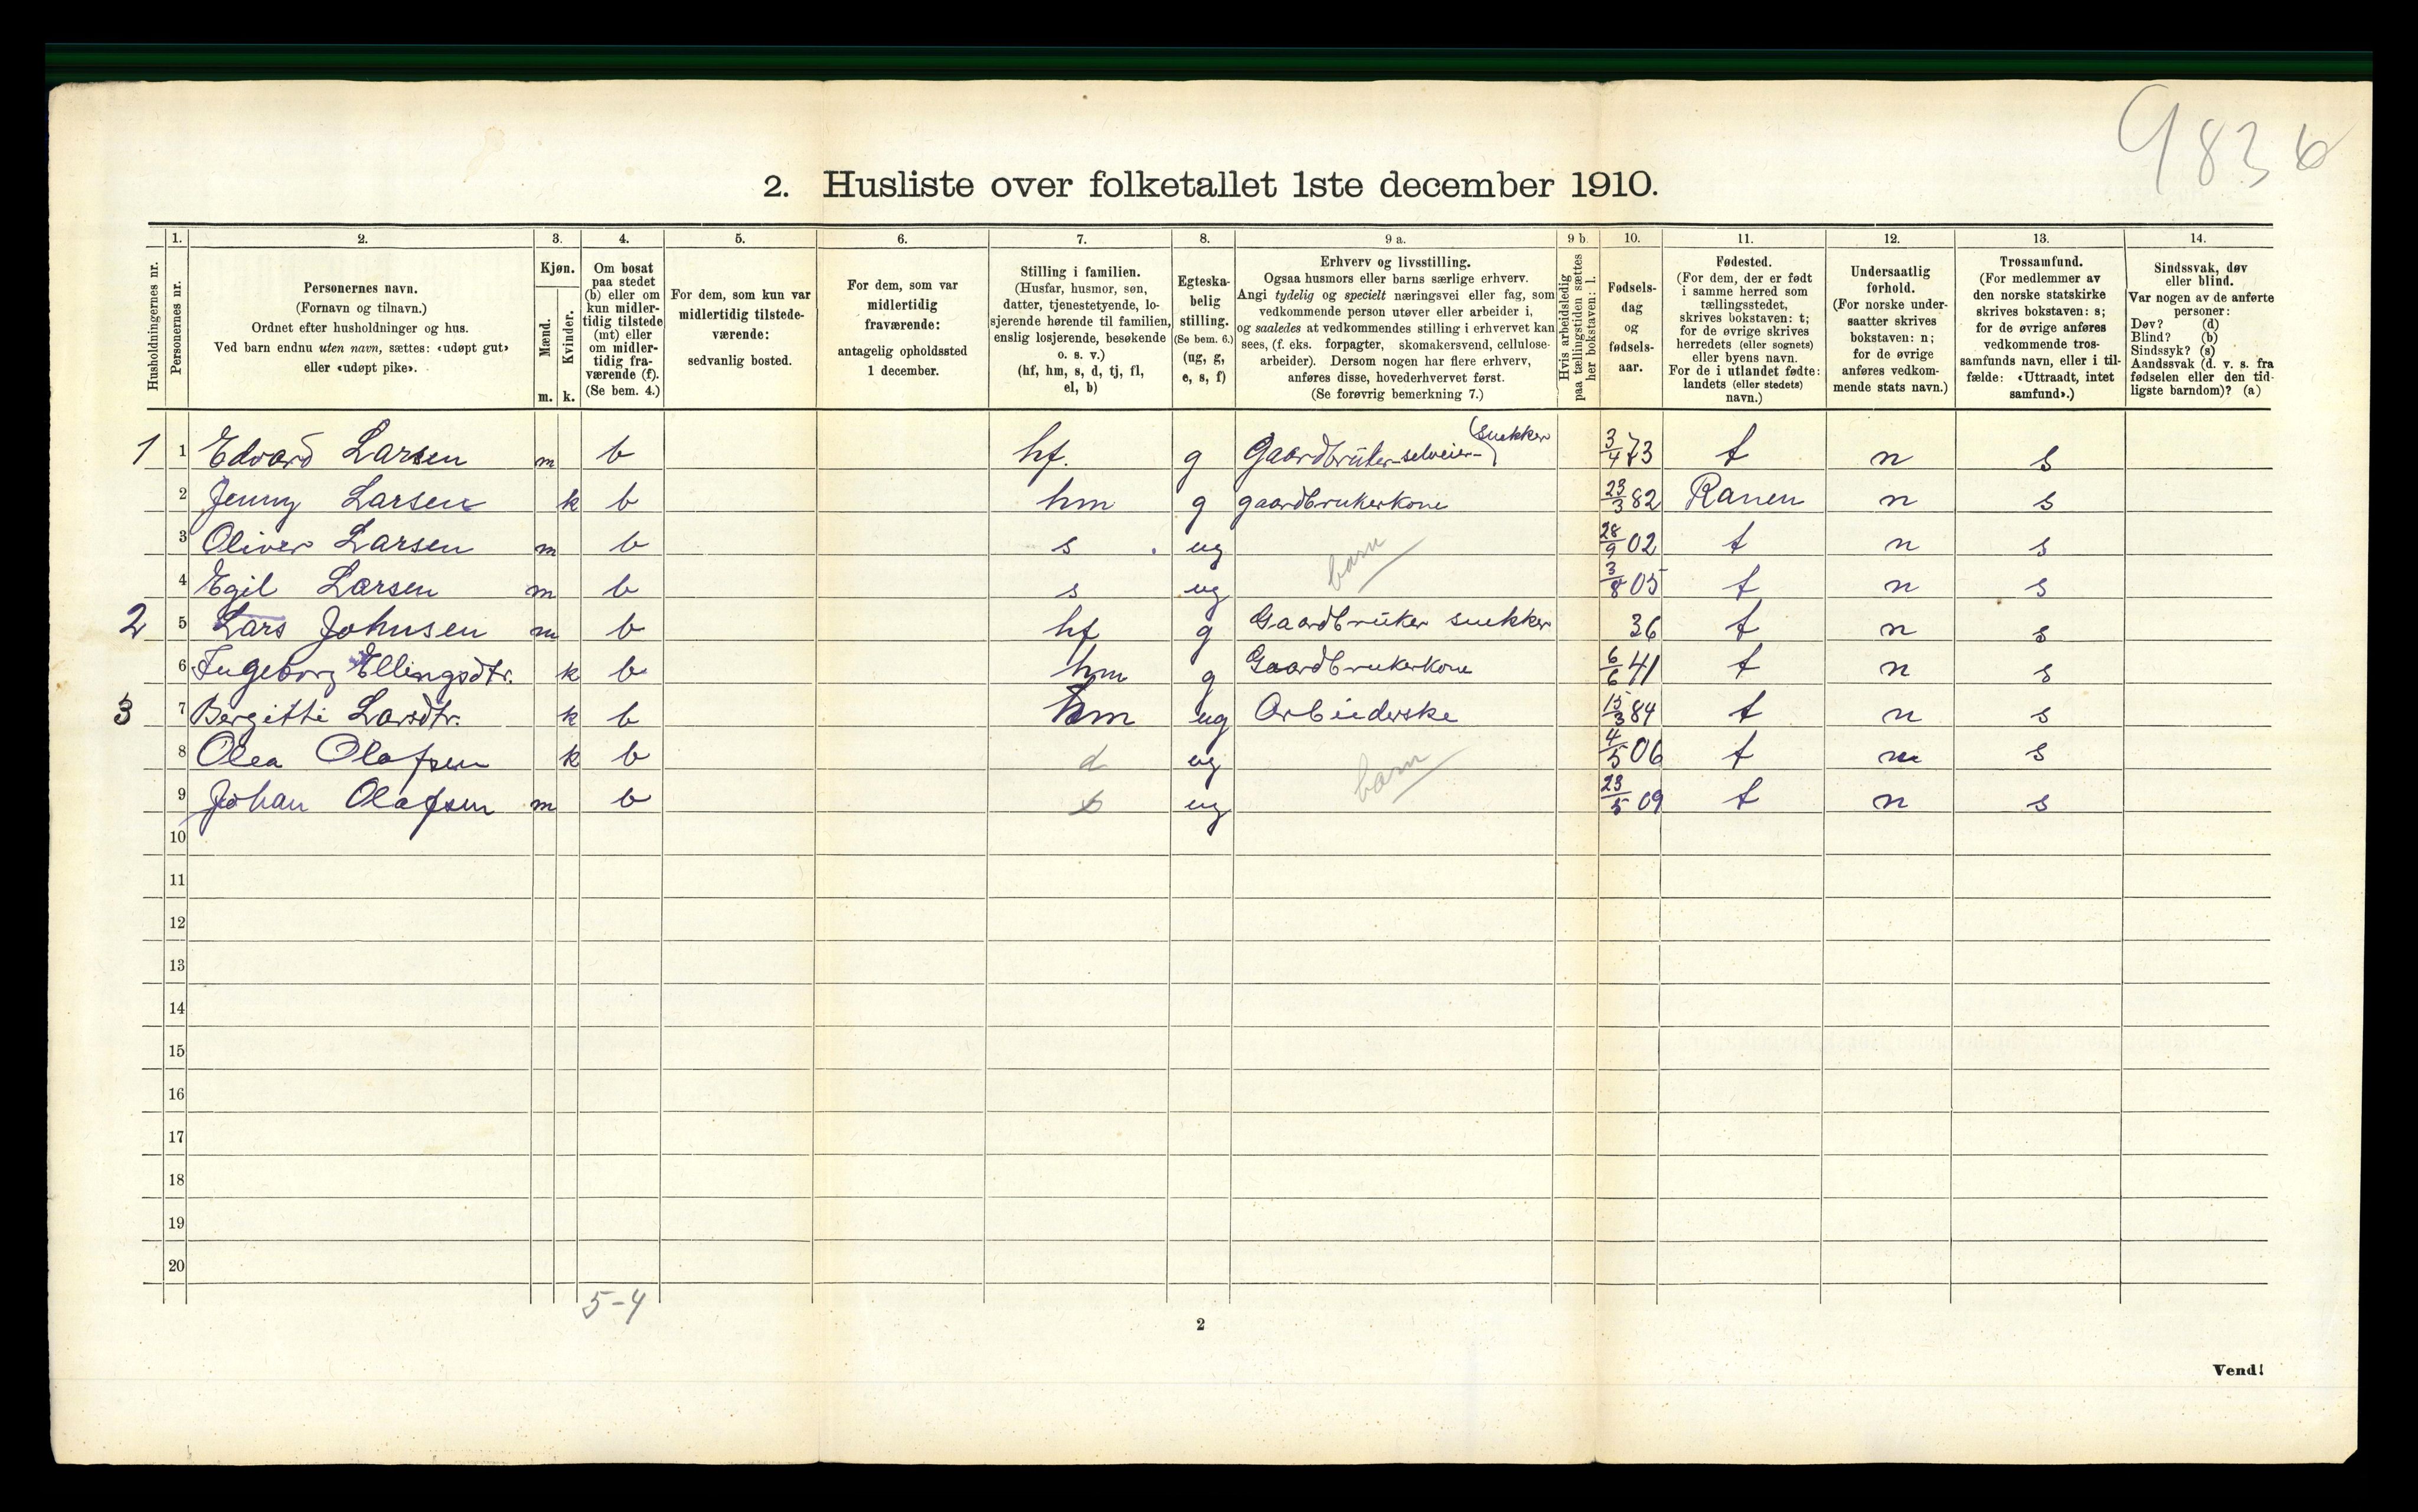 9836
2. Husliste over folketallet 1ste december 1910.
Husholdningernes nr.
1. Personernes nr.
2. Personernes navn.
(Fornavn og tilnavn.)
Ordnet efter husholdninger og hus.
Ved barn endnu uten navn, sættes: «udøpt gut»
eller «udøpt pike».
3. Kjøn.
Mænd. m.
Kvinder. k.
4. Om bosat
paa stedet
(b) eller om
kun midler-
tidig tilstede
(mt) eller
om midler-
tidig fra-
værende (f).
(Se bem. 4.)
5. For dem, som kun var
midlertidig tilstede-
værende:
sedvanlig bosted.
6. For dem, som var
midlertidig
fraværende:
antagelig opholdssted
1 december.
7. Stilling i familien.
(Husfar, husmor, søn,
datter, tjenestetyende, lo-
sjerende hørende til familien,
enslig losjerende, besøkende
o. s. v.)
(hf, hm, s, d, tj, fl,
el, b)
8. Egteska-
belig
stilling.
(Se bem. 6.)
(ug, g,
e, s, f)
9 a. Erhverv og livsstilling.
Ogsaa husmors eller barns særlige erhverv.
Angi tydelig og specielt næringsvei eller fag, som
vedkommende person utøver eller arbeider i,
og saaledes at vedkommendes stilling i erhvervet kan
sees, (f. eks. forpagter, skomakersvend, cellulose-
arbeider). Dersom nogen har flere erhverv,
anføres disse, hovederhvervet først.
(Se forøvrig bemerkning 7.)
9 b. Hvis arbeidsledig
paa tællingstiden sættes
her bokstaven: l.
10. Fødsels-
dag
og
fødsels-
aar.
11. Fødested.
(For dem, der er født
i samme herred som
tællingsstedet,
skrives bokstaven: t;
for de øvrige skrives
herredets (eller sognets)
eller byens navn.
For de i utlandet fødte:
landets (eller stedets)
navn.)
12. Undersaatlig
forhold.
(For norske under-
saatter skrives
bokstaven: n;
for de øvrige
anføres vedkom-
mende stats navn.)
13. Trossamfund.
(For medlemmer av
den norske statskirke
skrives bokstaven: s;
for de øvrige anføres
vedkommende tros-
samfunds navn, eller i til-
fælde: «Uttraadt, intet
samfund».)
14. Sindssvak, døv
eller blind.
Var nogen av de anførte
personer:
Døv? (d)
Blind? (b)
Sindssyk? (s)
Aandssvak (d. v. s. fra
fødselen eller den tid-
ligste barndom)? (a)
1 1 Edvard Larsen m b hf. g Gaardbruker-selveier- (snekker) 3/4 73 t n s
2 Jenny Larsen k b hm g gaardbrukerkone 23/3 82 Ranen n s
3 Oliver Larsen m b s ug barn 28/9 02 t n s
4 Egil Larsen m b s ug 3/8 05 t n s
2 5 Lars Johnsen m b hf g Gaardbruker snekker 36 t n s
6 Ingeborg Ellingsdtr. k b hm g Gaardbrukerkone 6/6 41 t n s
3 7 Bergitte Larsdtr. k b hm ug Arbeiderske 15/3 84 t n s
8 Olea Olafsen k b d ug barn 4/5 06 t n s
9 Johan Olafsen m b s ug 23/5 09 t n s
10
11
12
13
14
15
16
17
18
19
20
5-4
2
Vend!